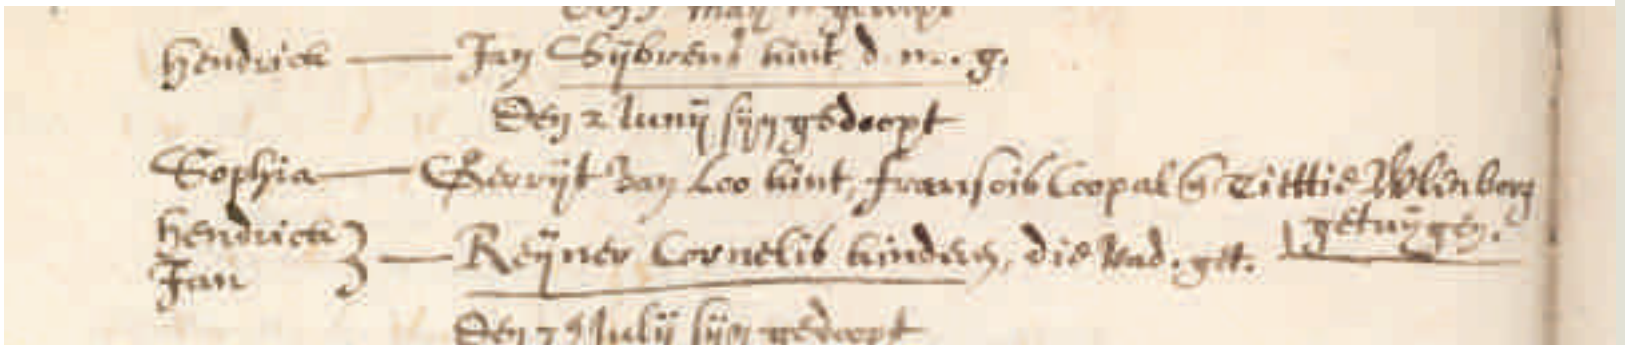 Hendrick — Jan Sijbrens kint d. m. g.
Den 2 Iunij sijn gedoopt
Sophia — Gerrijt van Loo kint, fransois Coopal en Tittie
getuijgen.
Hendrick
Jan } — Reijner Cornelis kinders, die vad. get.
Den Julij sijn gedoopt